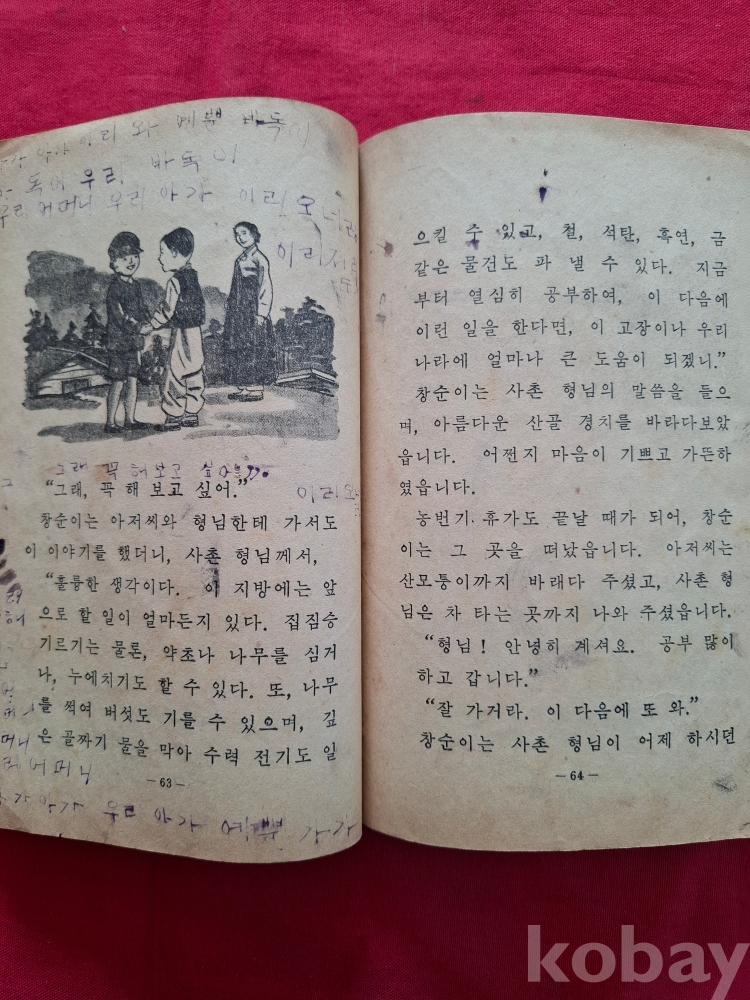 이리 와 예쁜 바둑이
우리 바둑이
우리 어머니 우리 아가 이리 오너라
이리
그래 꼭 해 보고 싶어
“그래, 꼭 해 보고 싶어.”
이리 와
창순이는 아저씨와 형님한테 가서도
이 이야기를 했더니, 사촌 형님께서,
“훌륭한 생각이다. 이 지방에는 앞
으로 할 일이 얼마든지 있다. 집짐승
기르기는 물론, 약초나 나무를 심거
나, 누에치기도 할 수 있다. 또, 나무
를 썩여 버섯도 기를 수 있으며, 깊
은 골짜기 물을 막아 수력 전기도 일
어머니
—63—
우리 아가 예쁜
으킬 수 있고, 철, 석탄, 흑연, 금
같은 물건도 파 낼 수 있다. 지금
부터 열심히 공부하여, 이 다음에
이런 일을 한다면, 이 고장이나 우리
나라에 얼마나 큰 도움이 되겠니.”
창순이는 사촌 형님의 말씀을 들으
며, 아름다운 산골 경치를 바라다보았
읍니다. 어쩐지 마음이 기쁘고 가든하
였읍니다.
농번기 휴가도 끝날 때가 되어, 창순
이는 그 곳을 떠났읍니다. 아저씨는
산모퉁이까지 바래다 주셨고, 사촌 형
님은 차 타는 곳까지 나와 주셨읍니다.
“형님! 안녕히 계셔요. 공부 많이
하고 갑니다.”
“잘 가거라. 이 다음에 또 와.”
창순이는 사촌 형님이 어제 하시던
—64—
kobay